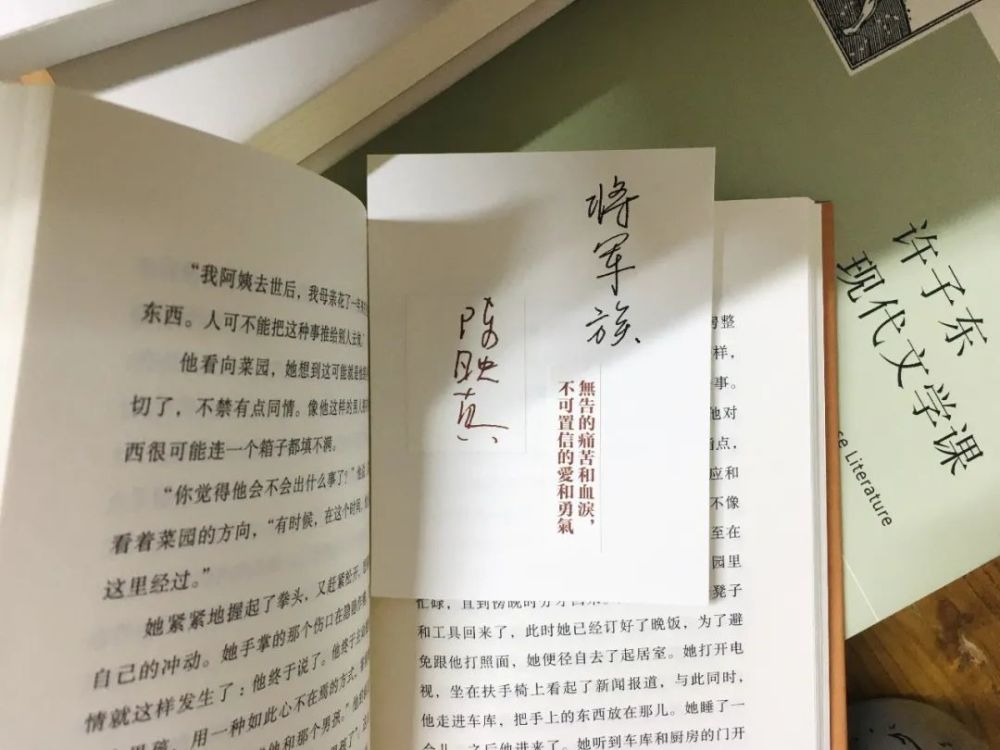 “我阿姨去世后，我母亲花了一年
东西。人可不能把这种事推给别人去做
他看向菜园，她想到这可能就是他
切了，不禁有点同情。像他这样的男人
西很可能连一个箱子都填不满。
“你觉得他会不会出什么事了？”
看着菜园的方向，“有时候，在这个时间，
这里经过。”
她紧紧地握起了拳头，又赶紧松开，
自己的冲动。她手掌的那个伤口在隐隐作
情就这样发生了：他终于说了。他终于
用一种如此心不在焉的方式，
他和那个男孩。”
将军族
陈映真
無告的痛苦和血淚，
不可置信的愛和勇氣
整
样，
事。
他对
点，
应和
不像
至在
园里
凳子
忙碌，直到傍晚的
和工具回来了，此时她已经订好了晚饭，为了避
免跟他打照面，她便径自去了起居室。她打开电
视，坐在扶手椅上看起了新闻报道，与此同时，
他走进车库，把手上的东西放在那儿。她睡了一
会儿，之后他进来了。她听到车库和厨房的门开
许子东
现代文学课
Literature